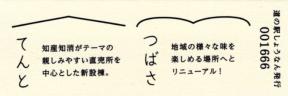 道の駅しょうなん発行
001666
つばさ
地域の様々な味を
楽しめる場所へと
リニューアル！
てんと
知産知消がテーマの
親しみやすい直売所を
中心とした新設棟。